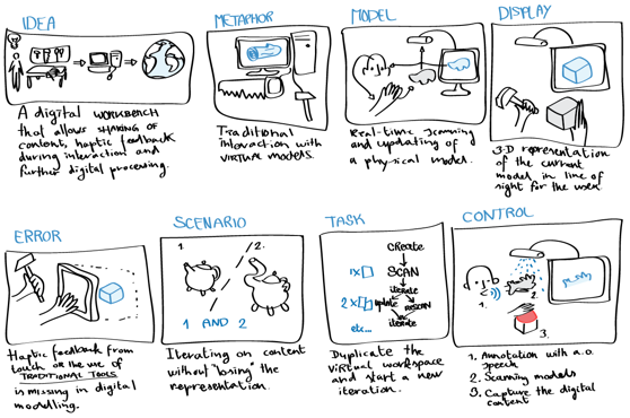 IDEA
A digital WORKBENCH
that allows SHARING of
content, haptic feedback
during interaction and
further digital processing.
METAPHOR
Traditional
Interaction with
VIRTUAL MODELS.
MODEL
Real-time scanning
and updating of
a physical model.
DISPLAY
3-D representation
of the current
model in line of
sight for the user.
ERROR
Haptic feedback from
touch or the use of
TRADITIONAL TOOLS
is missing in digital
modelling.
SCENARIO
1.
2.
1 AND 2
Iterating on content
without "losing" the
representation.
TASK
CREATE
1x
SCAN
iterate
2x
update
RESCAN
iterate
etc...
Duplicate the
virtual workspace
and start a new
iteration.
CONTROL
1.
2.
3.
1. Annotation with a.o.
speech
2. Scanning models
3. Capture the digital
content